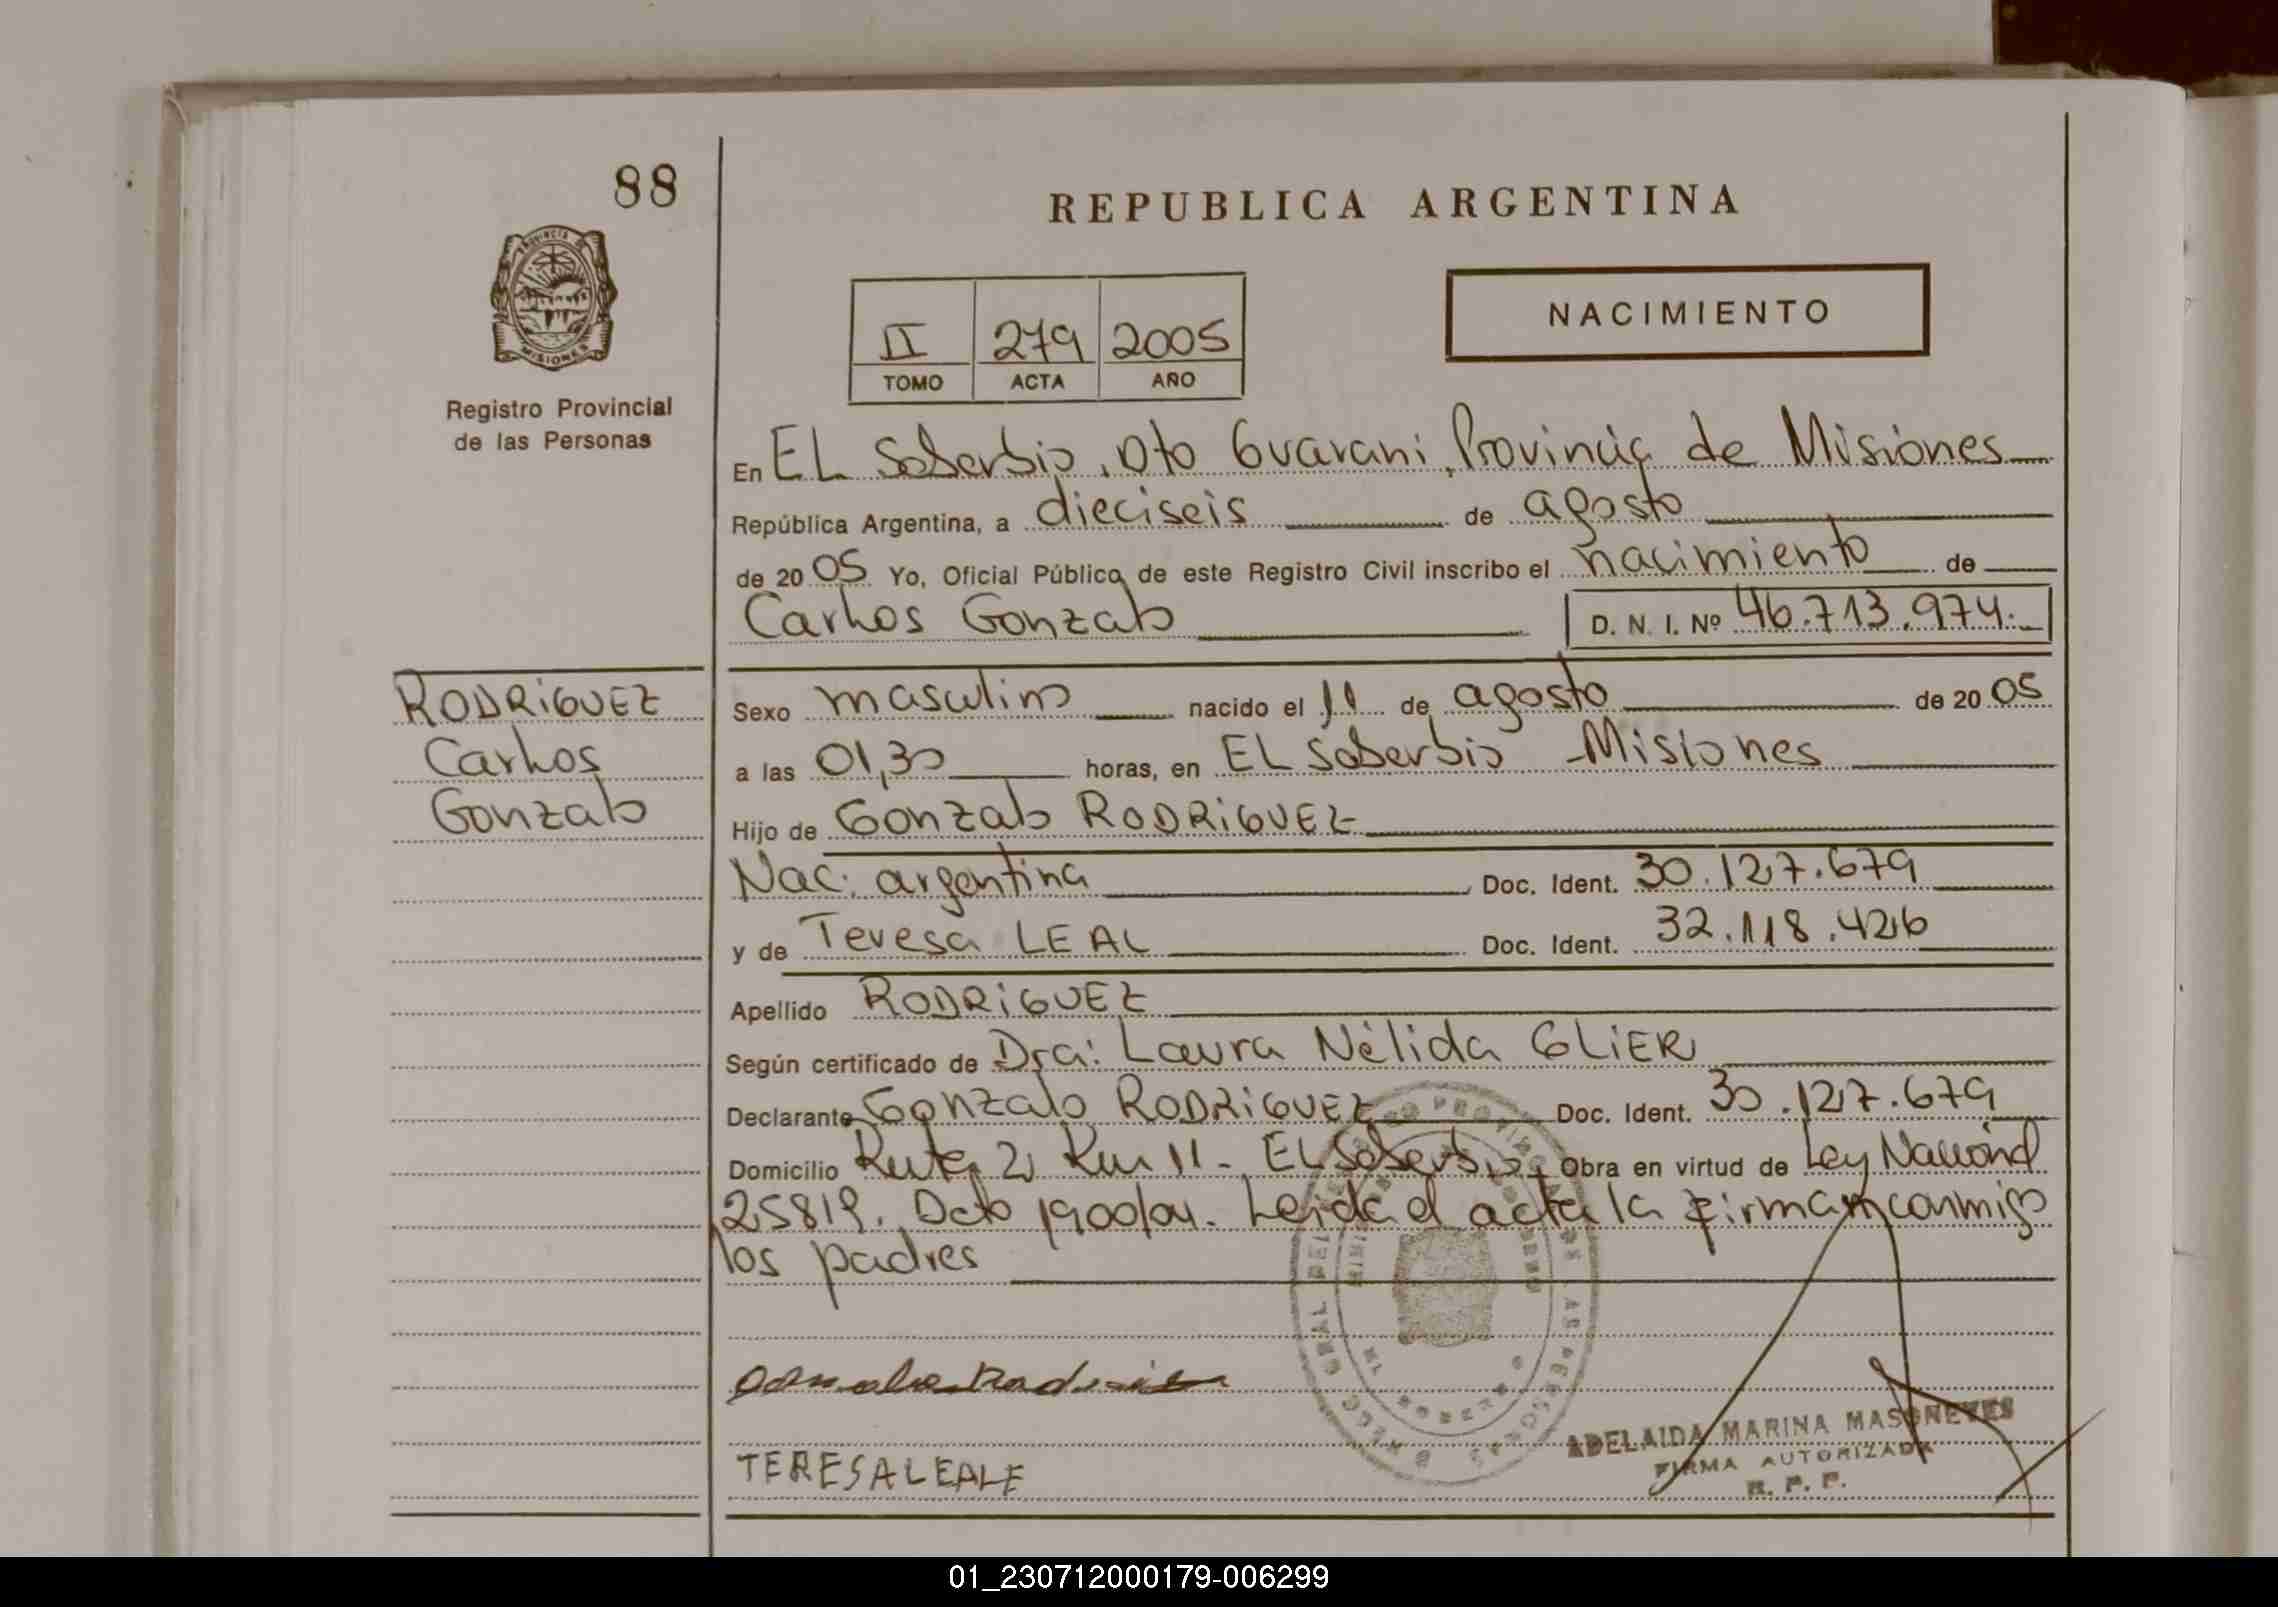 88
REPUBLICA ARGENTINA
PROVINCIA DE
MISIONES
Registro Provincial
de las Personas
II 279 2005
TOMO ACTA AÑO
NACIMIENTO
En EL Soberbio, Dto Guarani, Provincia de Misiones
República Argentina, a dieciseis de agosto
de 2005 Yo, Oficial Público de este Registro Civil inscribo el nacimiento de
Carlos Gonzalo D. N. I. Nº 46.713.974.
RODRIGUEZ
Carlos
Gonzalo
Sexo masculino nacido el 11 de agosto de 2005
a las 01,30 horas, en EL Soberbio - Misiones
Hijo de Gonzalo RODRIGUEZ
Nac: argentina Doc. Ident. 30.127.679
y de Teresa LEAL Doc. Ident. 32.118.426
Apellido RODRIGUEZ
Según certificado de Dra: Laura Nélida GLIER
Declarante Gonzalo RODRIGUEZ Doc. Ident. 30.127.679
Domicilio Ruta 2 Km 11 - EL Soberbio, Obra en virtud de Ley Nacional
25819. Dcto 1900/04. Leida el acta la firman conmigo
los padres
TERESALEALE
ADELAIDA MARINA MASONEVES
FIRMA AUTORIZADA
R. P. P.
01_230712000179-006299